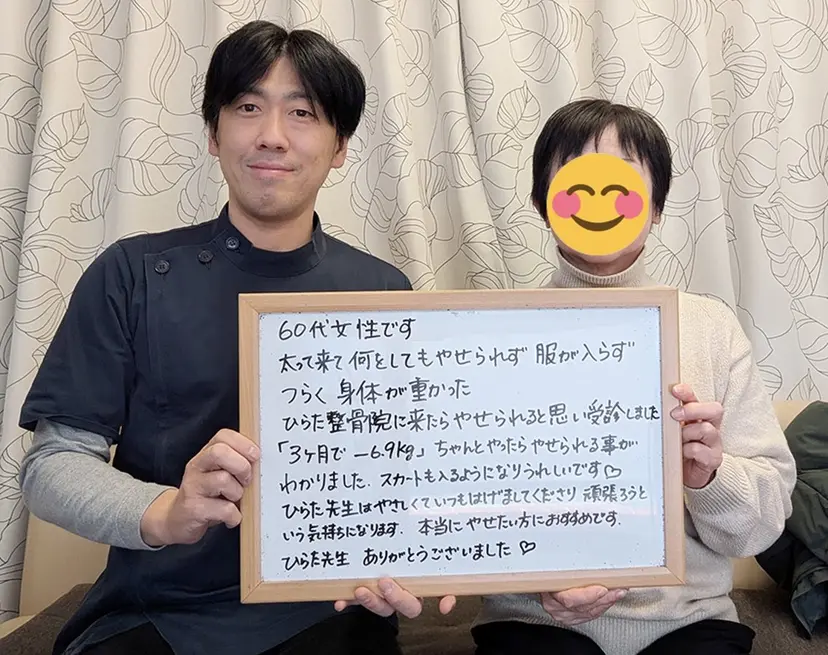 60代女性です
太って来て何をしてもやせられず 服が入らず
つらく 身体が重かった
ひらた整骨院に来たらやせられると思い受診しました
「3ヶ月で −6.9kg」ちゃんとやったらやせられる事が
わかりました。スカートも入るようになりうれしいです♡
ひらた先生はやさしくていつもはげましてくださり 頑張ろうと
いう気持ちになります。 本当にやせたい方におすすめです。
ひらた先生 ありがとうございました ♡